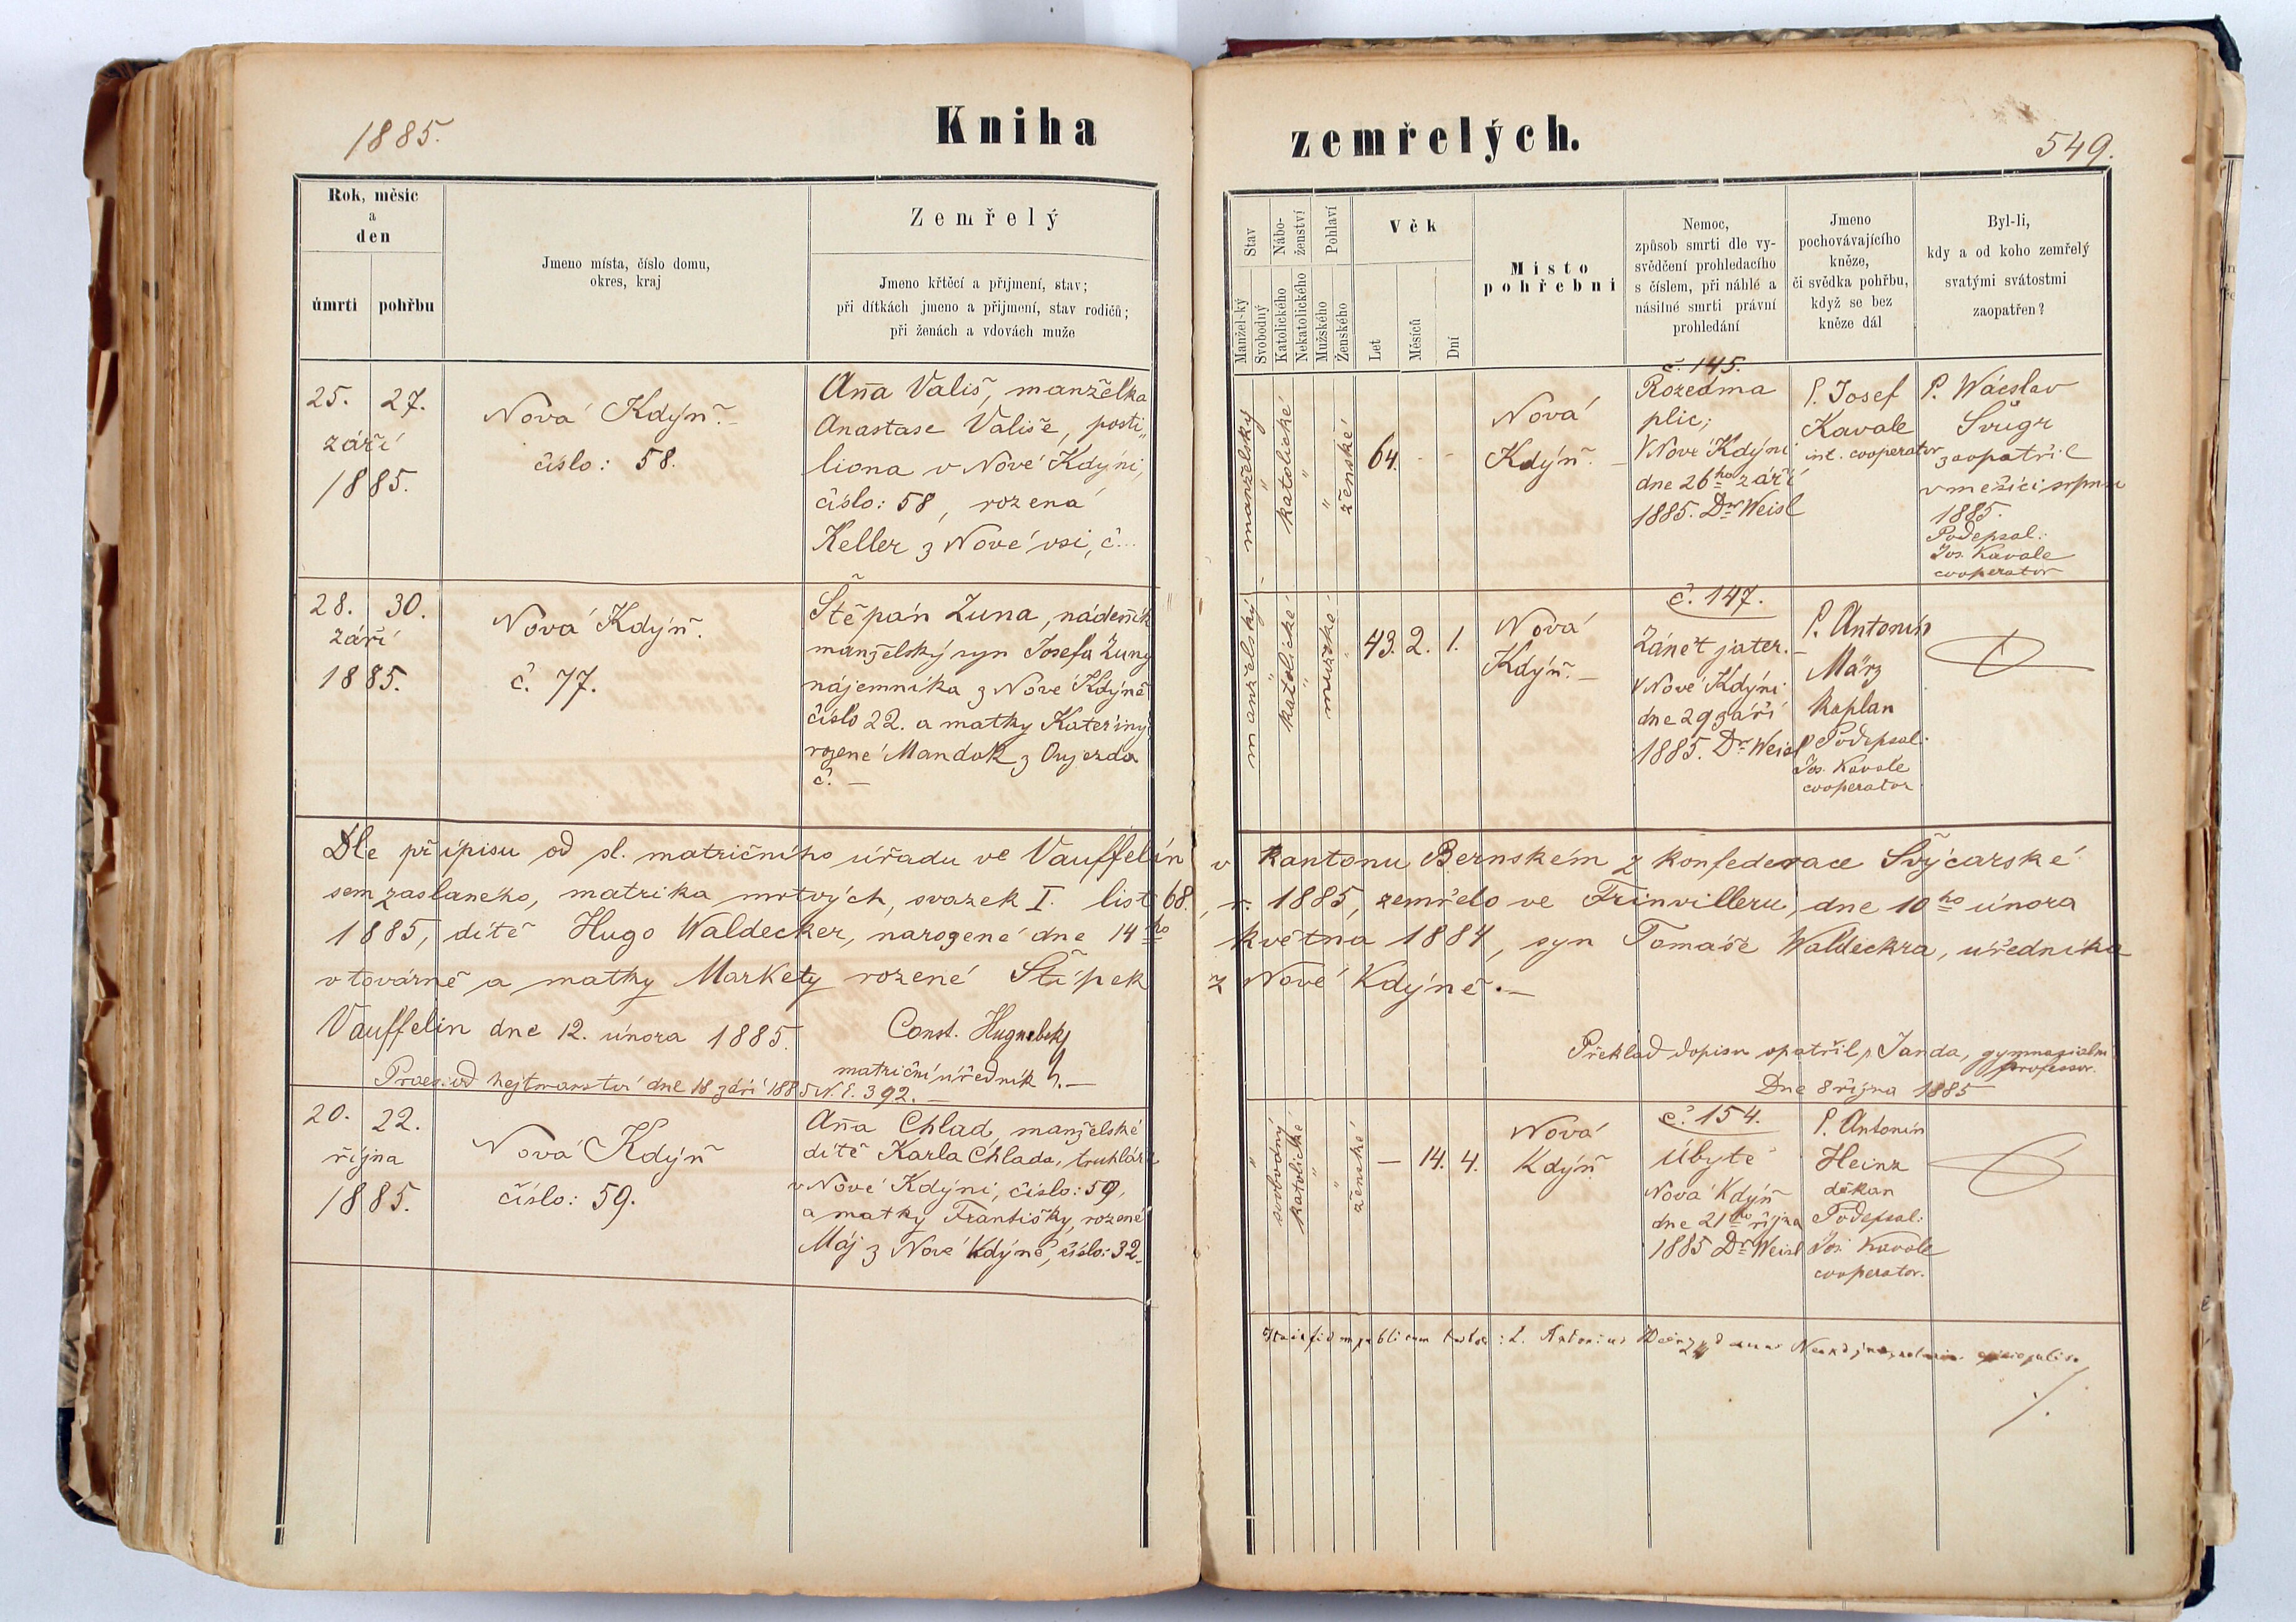 1885.
Kniha
zemřelých.
549.
Rok, měsíc
a
den
úmrtí
pohřbu
Jmeno místa, číslo domu,
okres, kraj
Zemřelý
Jmeno křtěcí a přijmení, stav;
při dítkách jmeno a přijmení, stav rodičů;
při ženách a vdovách muže
Stav
Manžel-ký
Svobodný
Nábo-
ženství
Katolického
Nekatolického
Pohlaví
Mužského
Ženského
Věk
Let
Měsíců
Dní
Místo
pohřební
Nemoc,
způsob smrti dle vy-
svědčení prohledacího
s číslem, při náhlé a
násilné smrti právní
prohledání
Jmeno
pochovávajícího
kněze,
či svědka pohřbu,
když se bez
kněze dál
Byl-li,
kdy a od koho zemřelý
svatými svátostmi
zaopatřen?
25. 27.
září
1885.
Nová Kdýň.
číslo: 58.
Aña Vališ, manželka
Anastase Vališe, posti„
liona v Nové Kdýni,
číslo: 58, rozená
Keller z Nové vsi, č...
manželský
katolické
ženské
64. - -
Nová
Kdýň. -
č. 145.
Rozedma
plic;
V Nové Kdýni
dne 26ho září
1885. Dr Weisl
P. Josef
Kavale
int. cooperator
P. Wácslav
Švůgr
zaopatřil
v měsíci srpnu
1885.
Podepsal:
Jos. Kavale
cooperator
28. 30.
září
1885.
Nová Kdýň.
č. 77.
Štěpán Žuna, nádeník
manželský syn Josefa Žuny
nájemníka z Nové Kdýně
číslo 22. a matky Kateřiny
rozené Mandok z Oujezda
č. —
manželský
katolické
mužsko
43. 2. 1.
Nová
Kdýň. -
č. 147.
Zánět jater. -
V Nové Kdýni
dne 29 září
1885. Dr Weisl
P. Antonín
März
kaplan
Podepsal:
Jos. Kavale
cooperator
Dle přípisu od sl. matričního úřadu ve Vauffelin v kantonu Bernském z konfederace Švýcarské
sem zaslaného, matrika mrtvých, svazek I. list 68., r. 1885, zemřelo ve Frinvilleru, dne 10ho února
1885, dítě Hugo Waldecker, narozené dne 14ho května 1884, syn Tomáše Waldeckra, úředníka
v továrně a matky Markety rozené Štípek z Nové Kdýně. —
Vauffelin dne 12. února 1885.
Const.
matriční úředník
Praes. od hejtmanství dne 18 září 1885 N. E. 392. —
Překlad dopisu opatřil p. Janda, gymnasialní
professor.
Dne 8 října 1885
20. 22.
října
1885.
Nová Kdýň
číslo: 59.
Aña Chlad, manželské
dítě Karla Chlada, truhláře
v Nové Kdýni, číslo: 59,
a matky Františky, rozené
Máj z Nové Kdýně, číslo: 32.
svobodný
katolické
ženské
— 14. 4.
Nová
Kdýň.
č. 154.
Úbytě
Nová Kdýň
dne 21ho října
1885 Dr Weisl
P. Antonín
Heinz
děkan
Podepsal:
Jos. Kavale
cooperator.
Ita in fidem publicam testor: P. Antonius Heinz